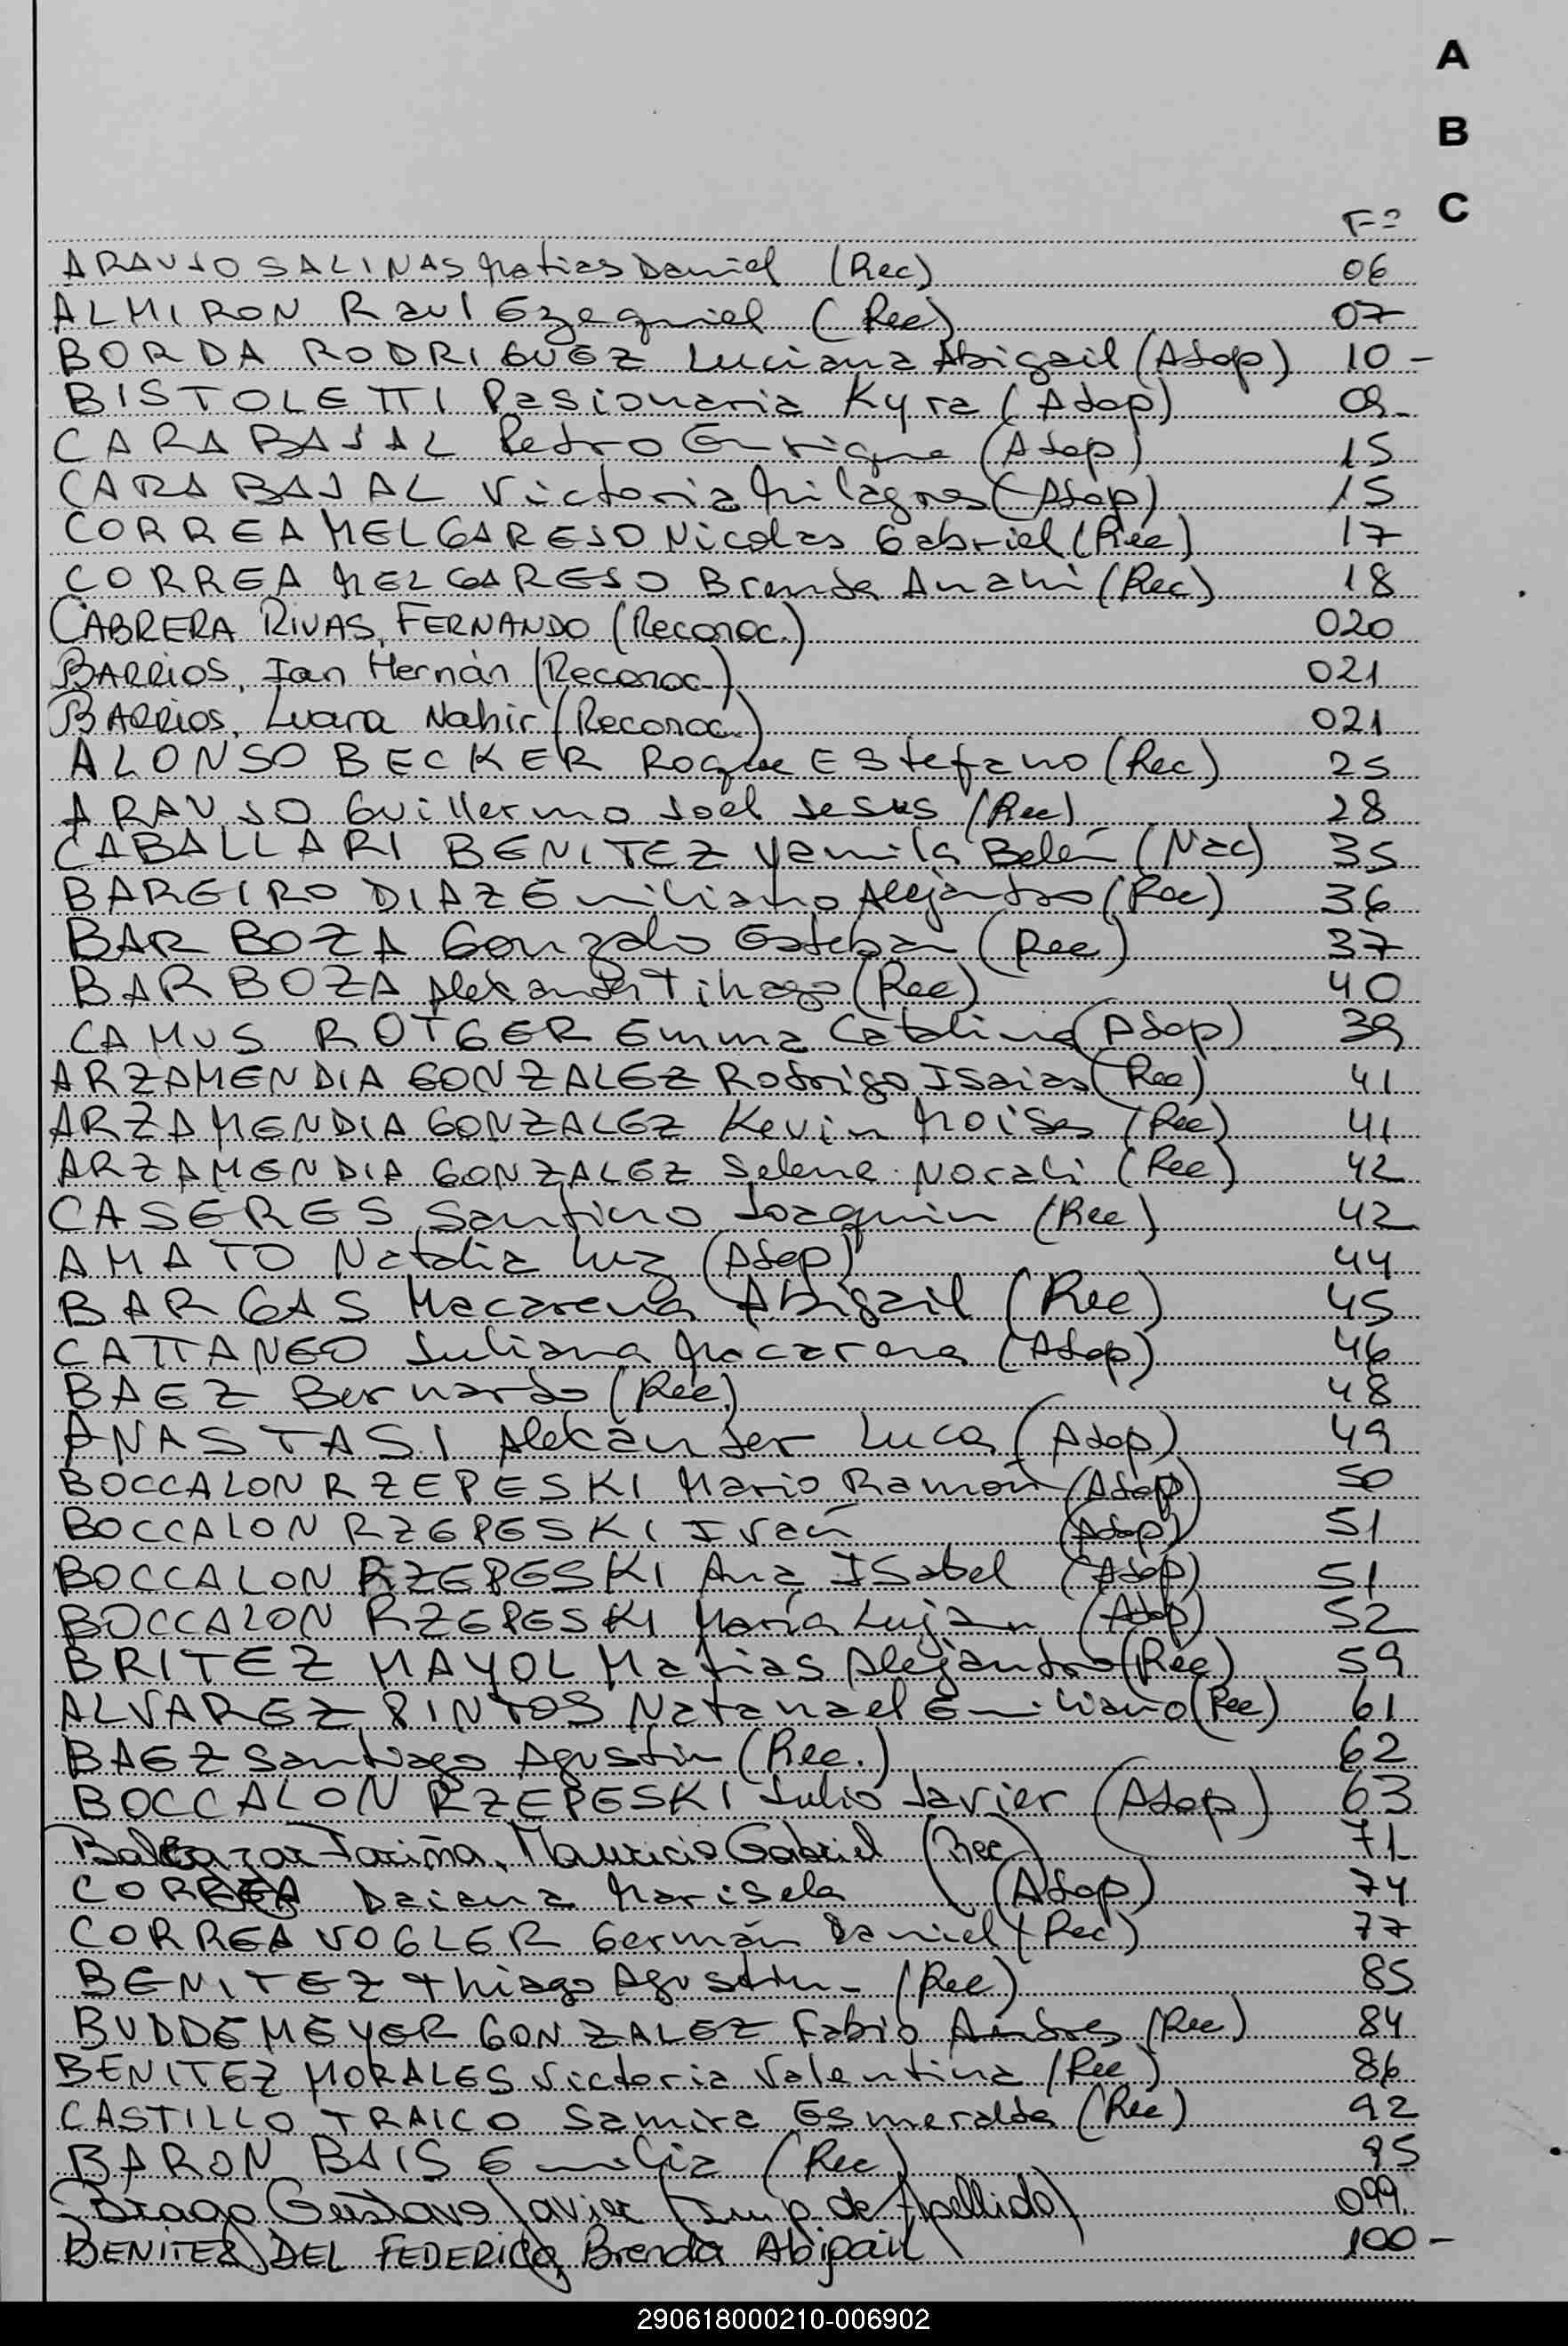 A
B
C
Fº
ARAUJO SALINAS Matias Daniel (Rec) 06
ALMIRON Raul Ezequiel (Rec) 07
BORDA RODRIGUEZ Luciana Abigail (Adop) 10 -
BISTOLETTI Pasionaria Kyra (Adop) 09
CARABAJAL Pedro Enrique (Adop) 15
CARABAJAL Victoria Milagros (Adop) 15
CORREA MELGAREJO Nicolas Gabriel (Rec) 17
CORREA MELGAREJO Brenda Anahi (Rec) 18
CABRERA RIVAS, FERNANDO (Reconoc.) 020
BARRIOS, Ian Hernán (Reconoc.) 021
BARRIOS, Luana Nahir (Reconoc.) 021
ALONSO BECKER Roque EStefano (Rec) 25
ARAUJO Guillermo Joel Jesus (Rec) 28
CABALLARI BENITEZ Yamila Belén (Nac) 35
BAREIRO DIAZ Emiliano Alejandro (Rec) 36
BARBOZA Gonzalo Esteban (Rec) 37
BARBOZA Alexander Tihago (Rec) 40
CAMUS ROTGER Emma Catalina (Adop) 39
ARZAMENDIA GONZALEZ Rodrigo ISaias (Rec) 41
ARZAMENDIA GONZALEZ Kevin Moises (Rec) 41
ARZAMENDIA GONZALEZ Selene Norali (Rec) 42
CASERES Santino Joaquin (Rec) 42
AMATO Natalia Luz (Adop) 44
BARGAS Macarena Abigail (Rec) 45
CATTANEO Juliana Macarena (Adop) 46
BAEZ Bernardo (Rec) 48
ANASTASI Alexander Luca (Adop) 49
BOCCALON RZEPESKI Mario Ramón (Adop) 50
BOCCALON RZEPESKI Iván (Adop) 51
BOCCALON RZEPESKI Ana ISabel (Adop) 51
BOCCALON RZEPESKI María Lujan (Adop) 52
BRITEZ MAYOL Matias Alejandro (Rec) 59
ALVAREZ PINTOS Natanael Emiliano (Rec) 61
BAEZ Santiago Agustin (Rec.) 62
BOCCALON RZEPESKI Julio Javier (Adop) 63
Baltazar Fariña, Mauricio Gabriel (Rec) 71
CORREA Daiana Marisela (Adop) 74
CORREA VOGLER Germán Daniel (Rec) 77
BENITEZ Thiago Agustin - (Rec) 85
BUDDEMEYER GONZALEZ Fabio Andres (Rec) 84
BENITEZ MORALES Victoria Valentina (Rec) 86
CASTILLO TRAICO Samira Esmeralda (Rec) 92
BARON BAIS Emilia (Rec) 95
Gustavo Javier (Imp. de Apellido) 099
BENITEZ DEL FEDERICO, Brenda Abigail 100 -
290618000210-006902